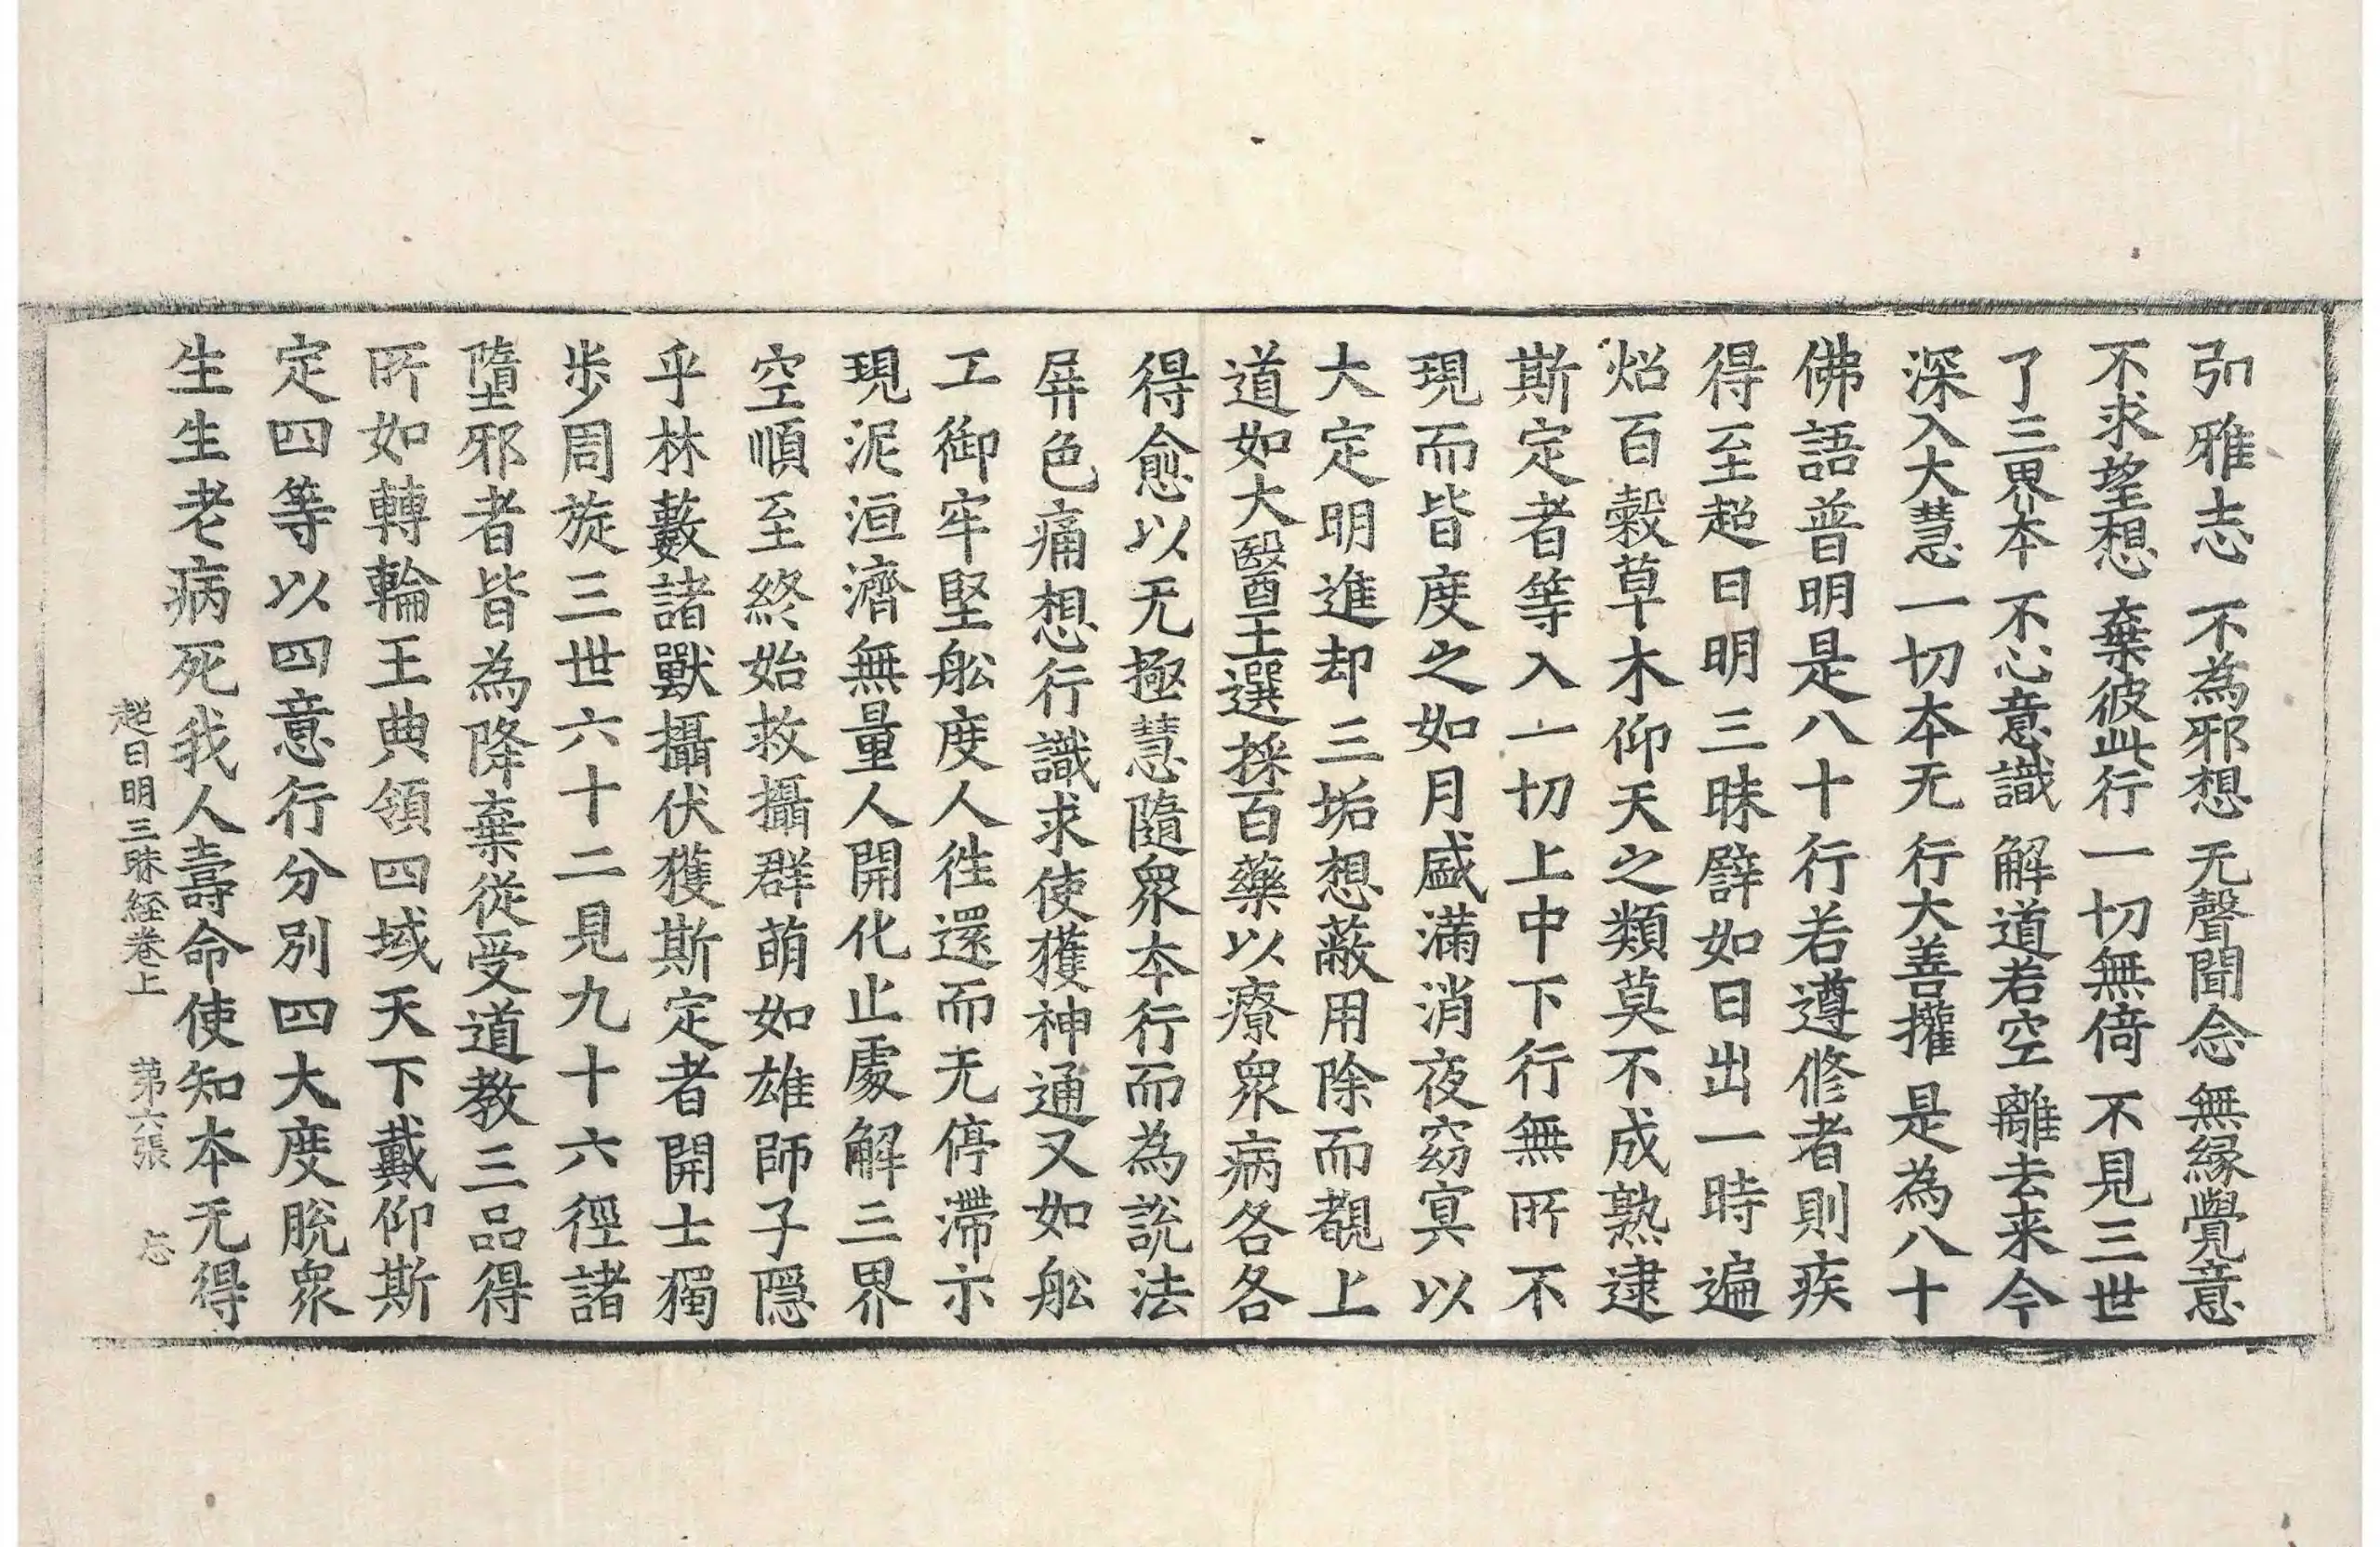 弘雅志 不為邪想 无聲聞念 無緣覺意
不求望想 棄彼此行 一切無倚 不見三世
了三界本 不心意識 解道若空 離去来今
深入大慧 一切本无 行大善攉 是為八十
佛語普明是八十行若遵修者則疾
得至超日明三昧譬如日出一時遍
炤百穀草木仰天之類莫不成熟逮
斯定者等入一切上中下行無所不
現而皆度之如月盛滿消夜窈冥以
大定明進却三垢想蔽用除而覩上
道如大醫王選採百藥以療衆病各各
得愈以无極慧隨衆本行而為說法
屏色痛想行識求使獲神通又如舩
工御牢堅舩度人往還而无停滯示
現泥洹濟無量人開化止處解三界
空順至終始救攝群萌如雄師子隱
乎林藪諸獸攝伏獲斯定者開士獨
步周旋三世六十二見九十六徑諸
墮邪者皆為降棄從受道教三品得
所如轉輪王典領四域天下戴仰斯
定四等以四意行分別四大度脫衆
生生老病死我人壽命使知本无得
超日明三昧経卷上 第六張 忘